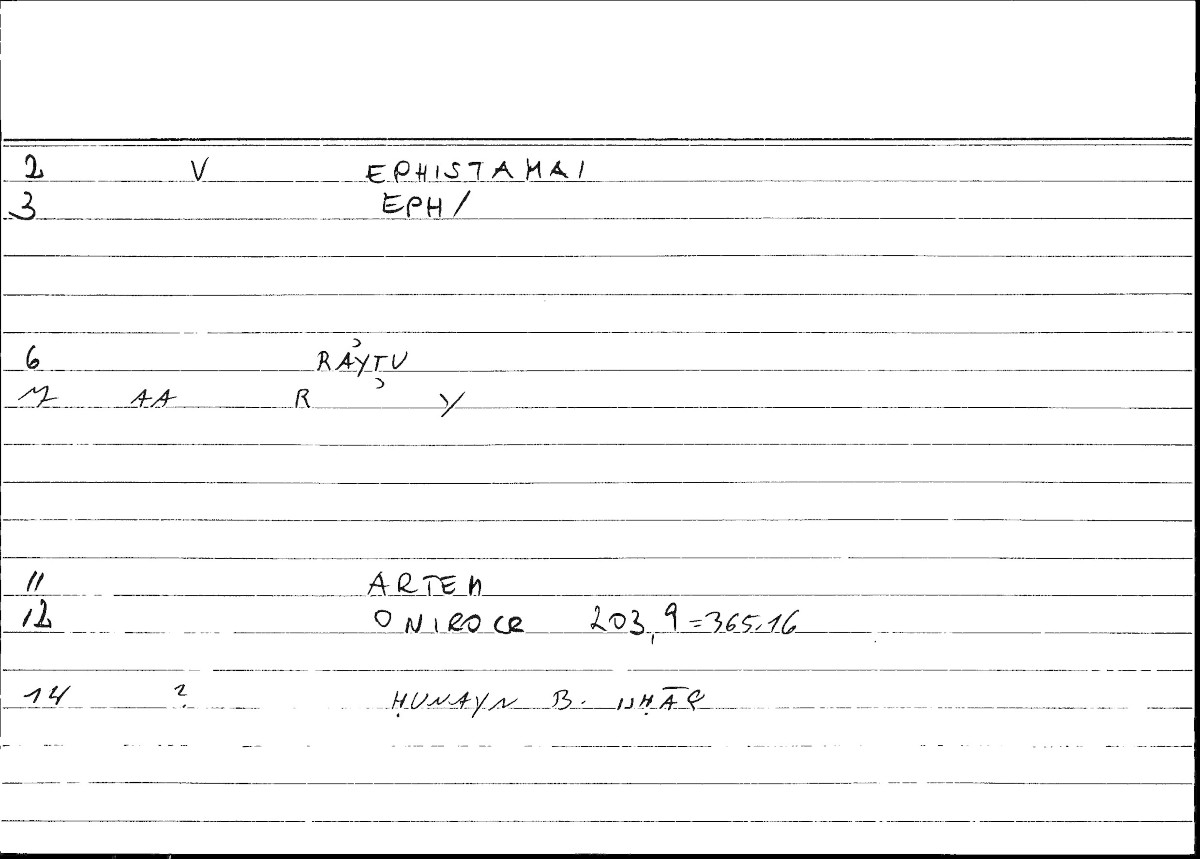 2 V EPHISTAMAI
3 EPH/
6 RAʾYTU
7 AA R ʾ Y
11 ARTEM
12 ONIROCR 203,9=365.16
14 ? ḤUNAYN B. ISḤĀQ